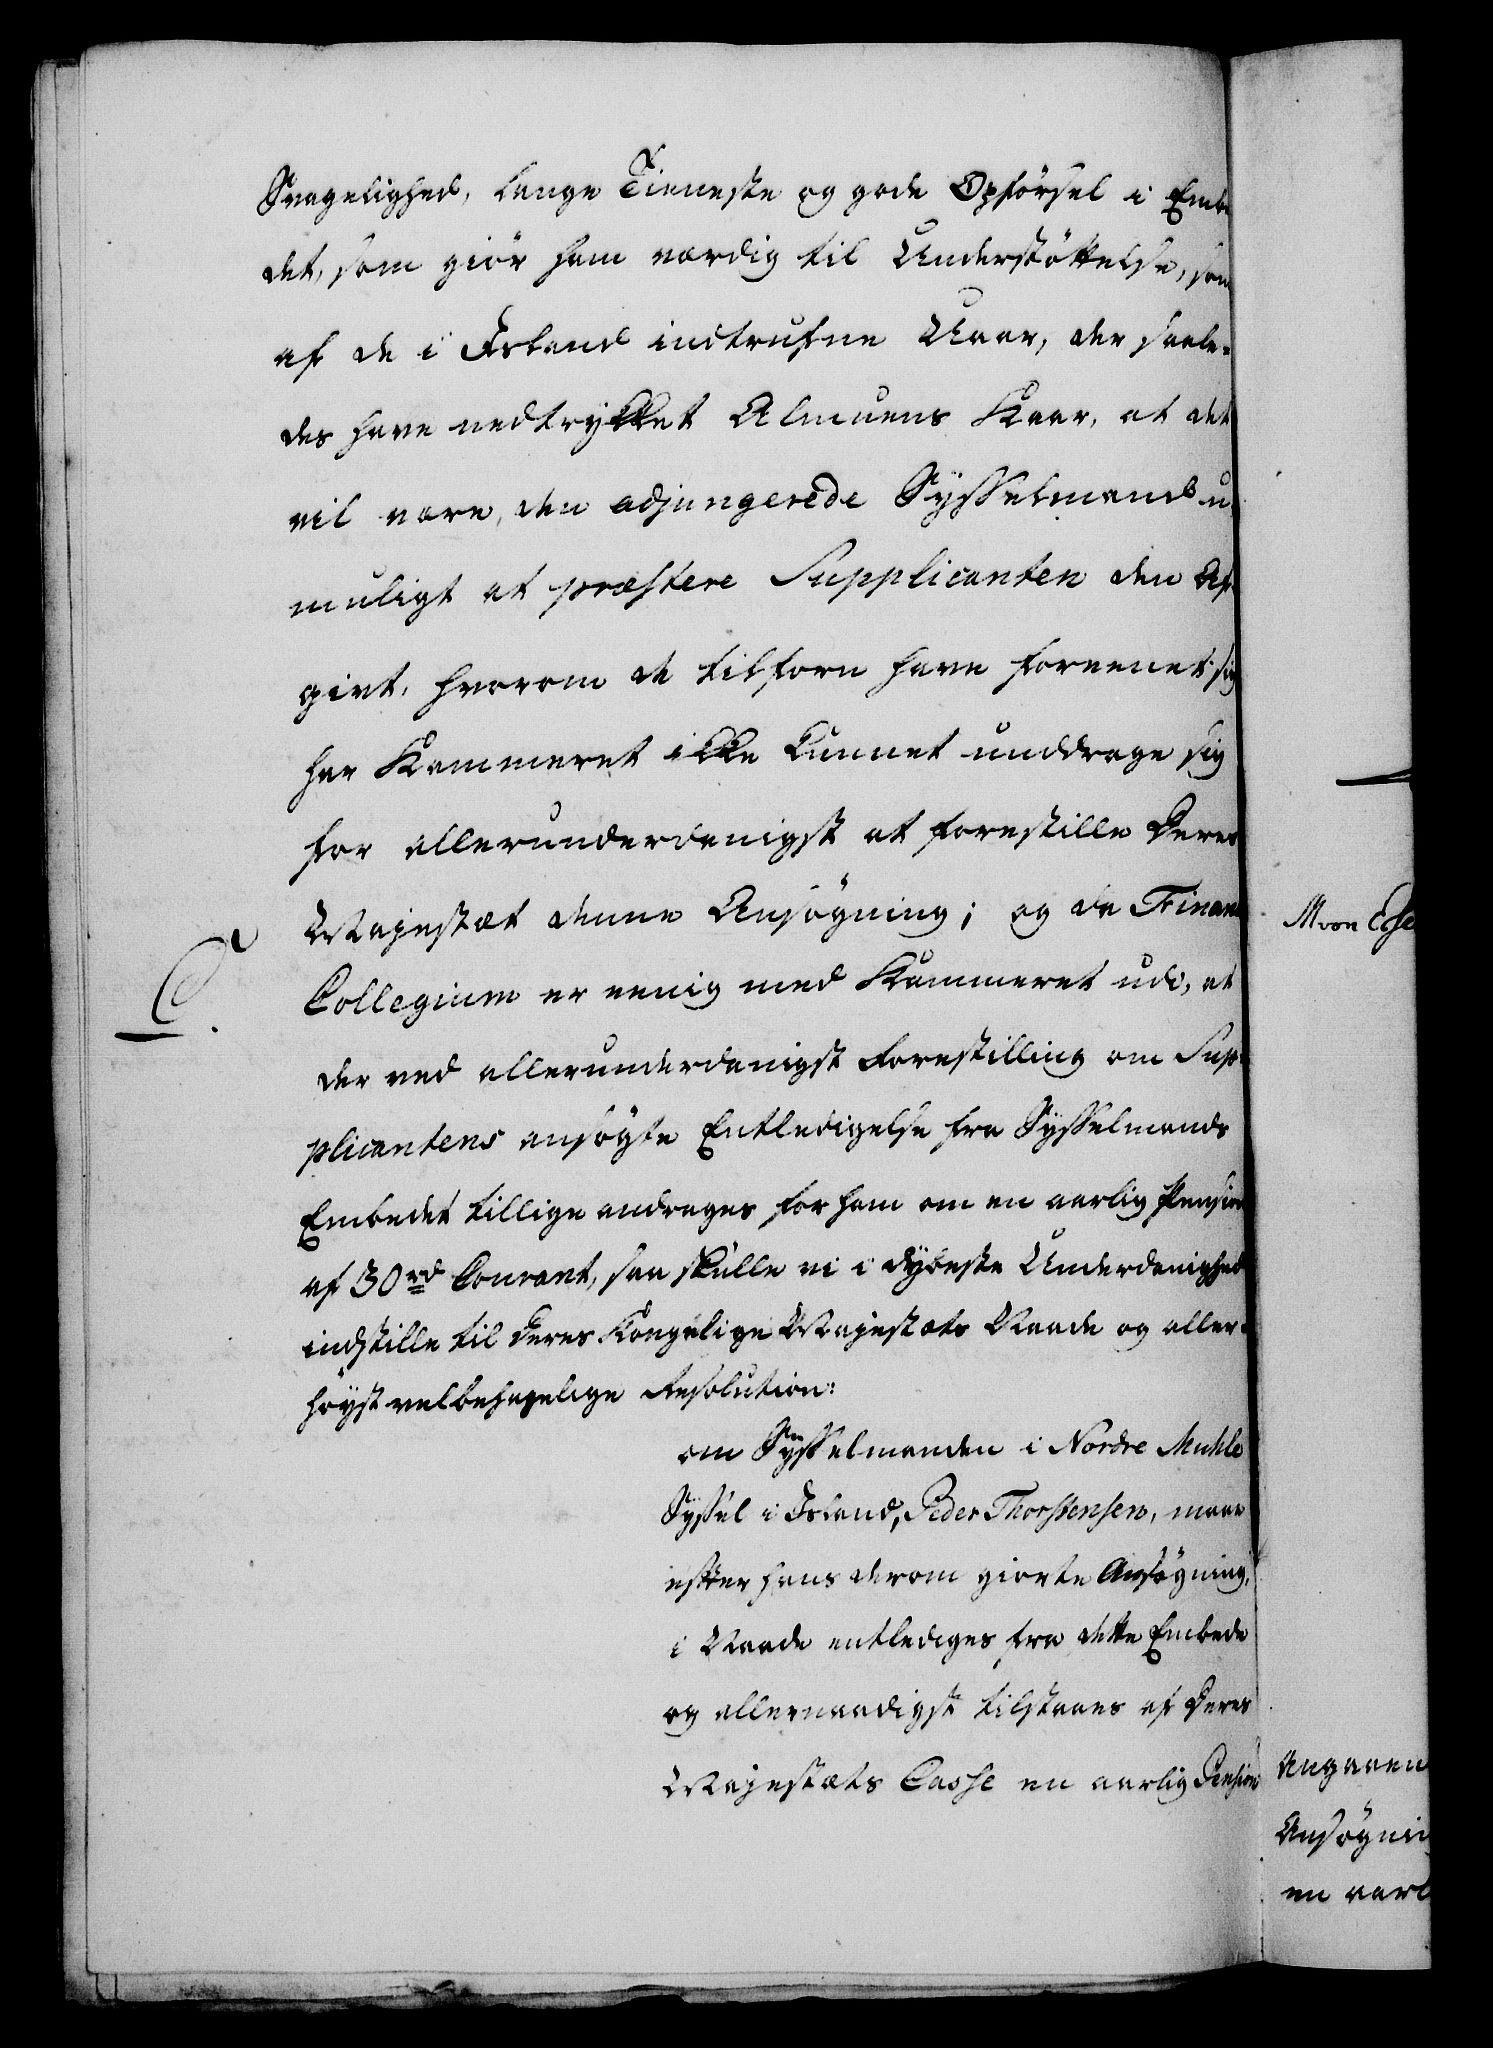 Svagelighed, lange Tieneste og gode Opförsel i Embe
det, som giör ham værdig til Understöttelse, som
af de i Island indtrufne Uaar, der saale-
des have nedtrykket Almuens Kaar, at det
vil være, den adjungerede Sysselmand u
muligt at præstere Supplicanten den Af-
givt, hvorom de tilforn have foreenet sig
har Kammeret ikke kunnet unddrage sig
for allerunderdanigst at forestille Deres
Majestæt denne Ansøgning; og da Finanz
Collegium er eenig med Kammeret udi, at
C.
der ved allerunderdanigst Forestilling om Sup-
plicantens ansøgte Entledigelse fra Sysselmands
Embedet tillige andrages for ham om en aarlig Pension
af 30 rd Courant, saa skulle vi i dybeste Underdanighed
indstille til Deres Kongelige Majestæts Naade og aller-
höyst velbehagelige Resolution:
om Sysselmanden i Nordre Muhle
Syssel i Island, Peder Thorstensen, maae
efter hans derom giorte Ansøgning,
i Naade entlediges fra dette Embede
og allernaadigst tilstaaes af Deres
Majestæts Casse en aarlig Pension
M von Esse
Angaaen
Ansøgnin
en aarl